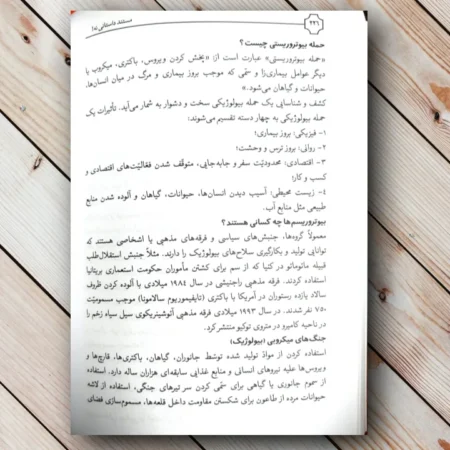 ۲۲۶
مستند داستانی ندا
حمله بیوتروریستی چیست؟
«حمله بیوتروریستی» عبارت است از: «پخش کردن ویروس، باکتری، میکروب یا
دیگر عوامل بیماری‌زا و سمّی که موجب بروز بیماری و مرگ در میان انسان‌ها،
حیوانات و گیاهان می‌شود.»
کشف و شناسایی یک حمله بیولوژیکی سخت و دشوار به شمار می‌آید. تأثیرات یک
حمله بیولوژیکی به چهار دسته تقسیم می‌شوند:
۱- فیزیکی: بروز بیماری؛
۲- روانی: بروز ترس و وحشت؛
۳- اقتصادی: محدودیّت سفر و جابه‌جایی، متوقّف شدن فعّالیّت‌های اقتصادی و
کسب و کار؛
٤- زیست محیطی: آسیب دیدن انسان‌ها، حیوانات، گیاهان و آلوده شدن منابع
طبیعی مثل منابع آب.
بیوتروریسم‌ها چه کسانی هستند؟
معمولاً گروه‌ها، جنبش‌های سیاسی و فرقه‌های مذهبی یا اشخاصی هستند که
توانایی تولید و بکارگیری سلاح‌های بیولوژیک را دارند. مثلاً جنبش استقلال‌طلب
قبیله مائومائو در کنیا که از سم برای کشتن مأموران حکومت استعماری بریتانیا
استفاده کردند. فرقه مذهبی راجنیشی در سال ۱۹۸٤ میلادی با آلوده کردن ظروف
سالاد یازده رستوران در آمریکا با باکتری (تایفیموریوم سالامونا) موجب مسمومیّت
۷۵۰ نفر شدند. در سال ۱۹۹۳ میلادی فرقه مذهبی آئوشینریکوی سیل سیاه زخم را
در ناحیه کامیرو در متروی توکیو منتشر کرد.
جنگ‌های میکروبی (بیولوژیک):
استفاده کردن از موادّ تولید شده توسّط جانوران، گیاهان، باکتری‌ها، قارچ‌ها و
ویروس‌ها علیه نیروهای انسانی و منابع غذایی سابقه‌ای هزاران ساله دارد. استفاده
از سموم جانوری یا گیاهی برای سمّی کردن سر تیرهای جنگی، استفاده از لاشه
حیوانات مرده از طاعون برای شکستن مقاومت داخل قلعه‌ها، مسموم‌سازی فضای